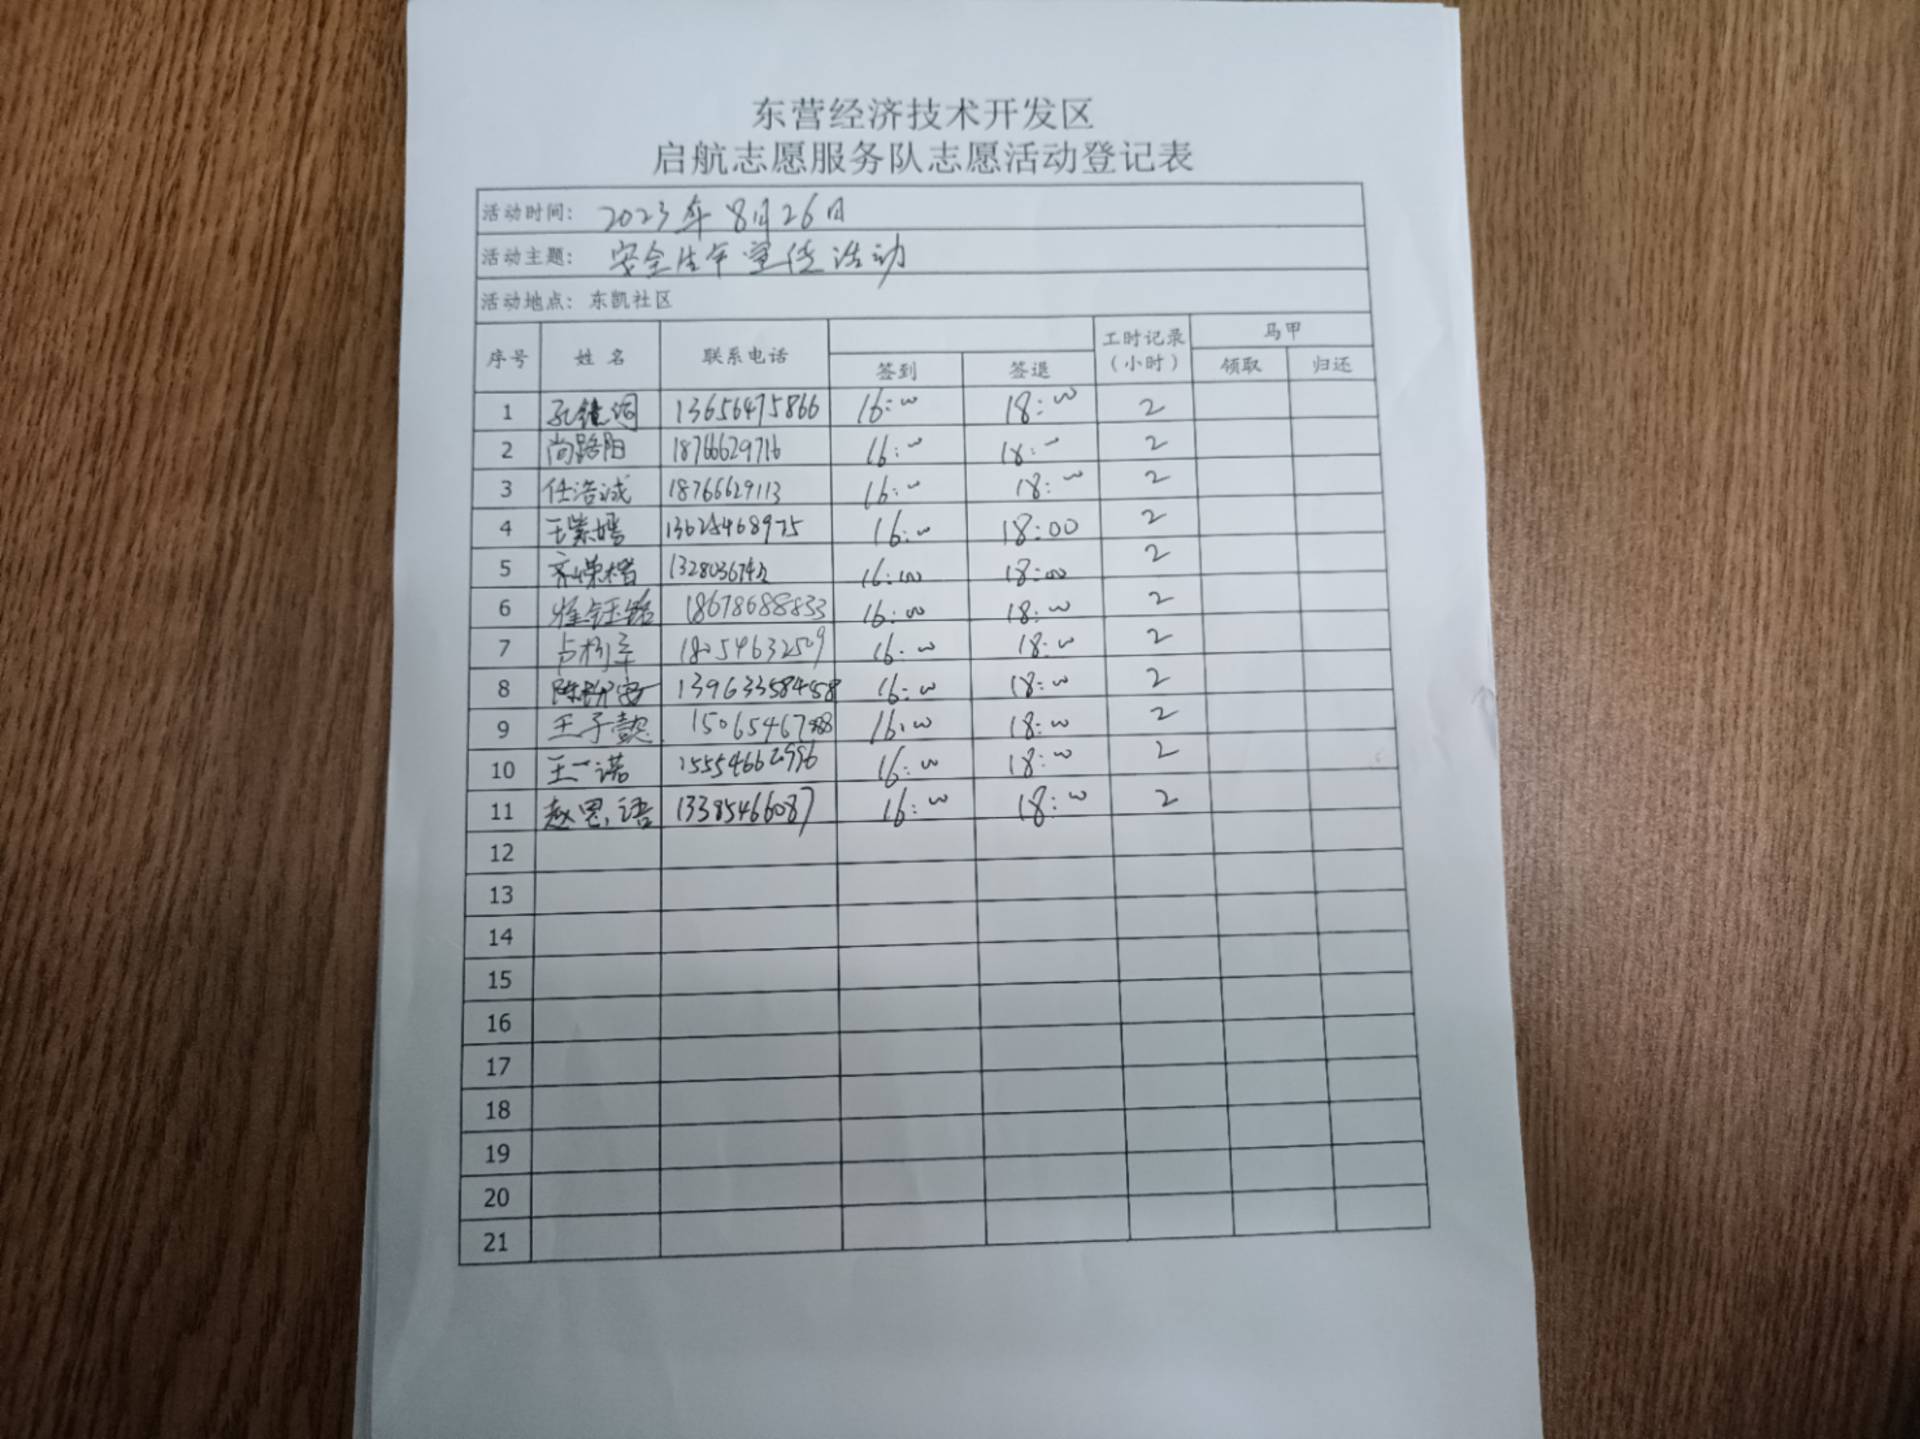 东营经济技术开发区
启航志愿服务队志愿活动登记表
活动时间： 2023年8月26日
活动主题： 安全生产宣传活动
活动地点：东凯社区
序号 姓名 联系电话 签到 签退 工时记录（小时） 马甲 领取 归还
1 13656475866 16:00 18:00 2
2 尚路阳 18766629716 16:00 18:00 2
3 任浩诚 18766629113 16:00 18:00 2
4 王紫嫣 13625468975 16:00 18:00 2
5 16:00 18:00 2
6 18678688833 16:00 18:00 2
7 18054632509 16:00 18:00 2
8 13963358458 16:00 18:00 2
9 王子懿 16:00 18:00 2
10 王一诺 15554662996 16:00 18:00 2
11 赵思语 13385466087 16:00 18:00 2
12
13
14
15
16
17
18
19
20
21